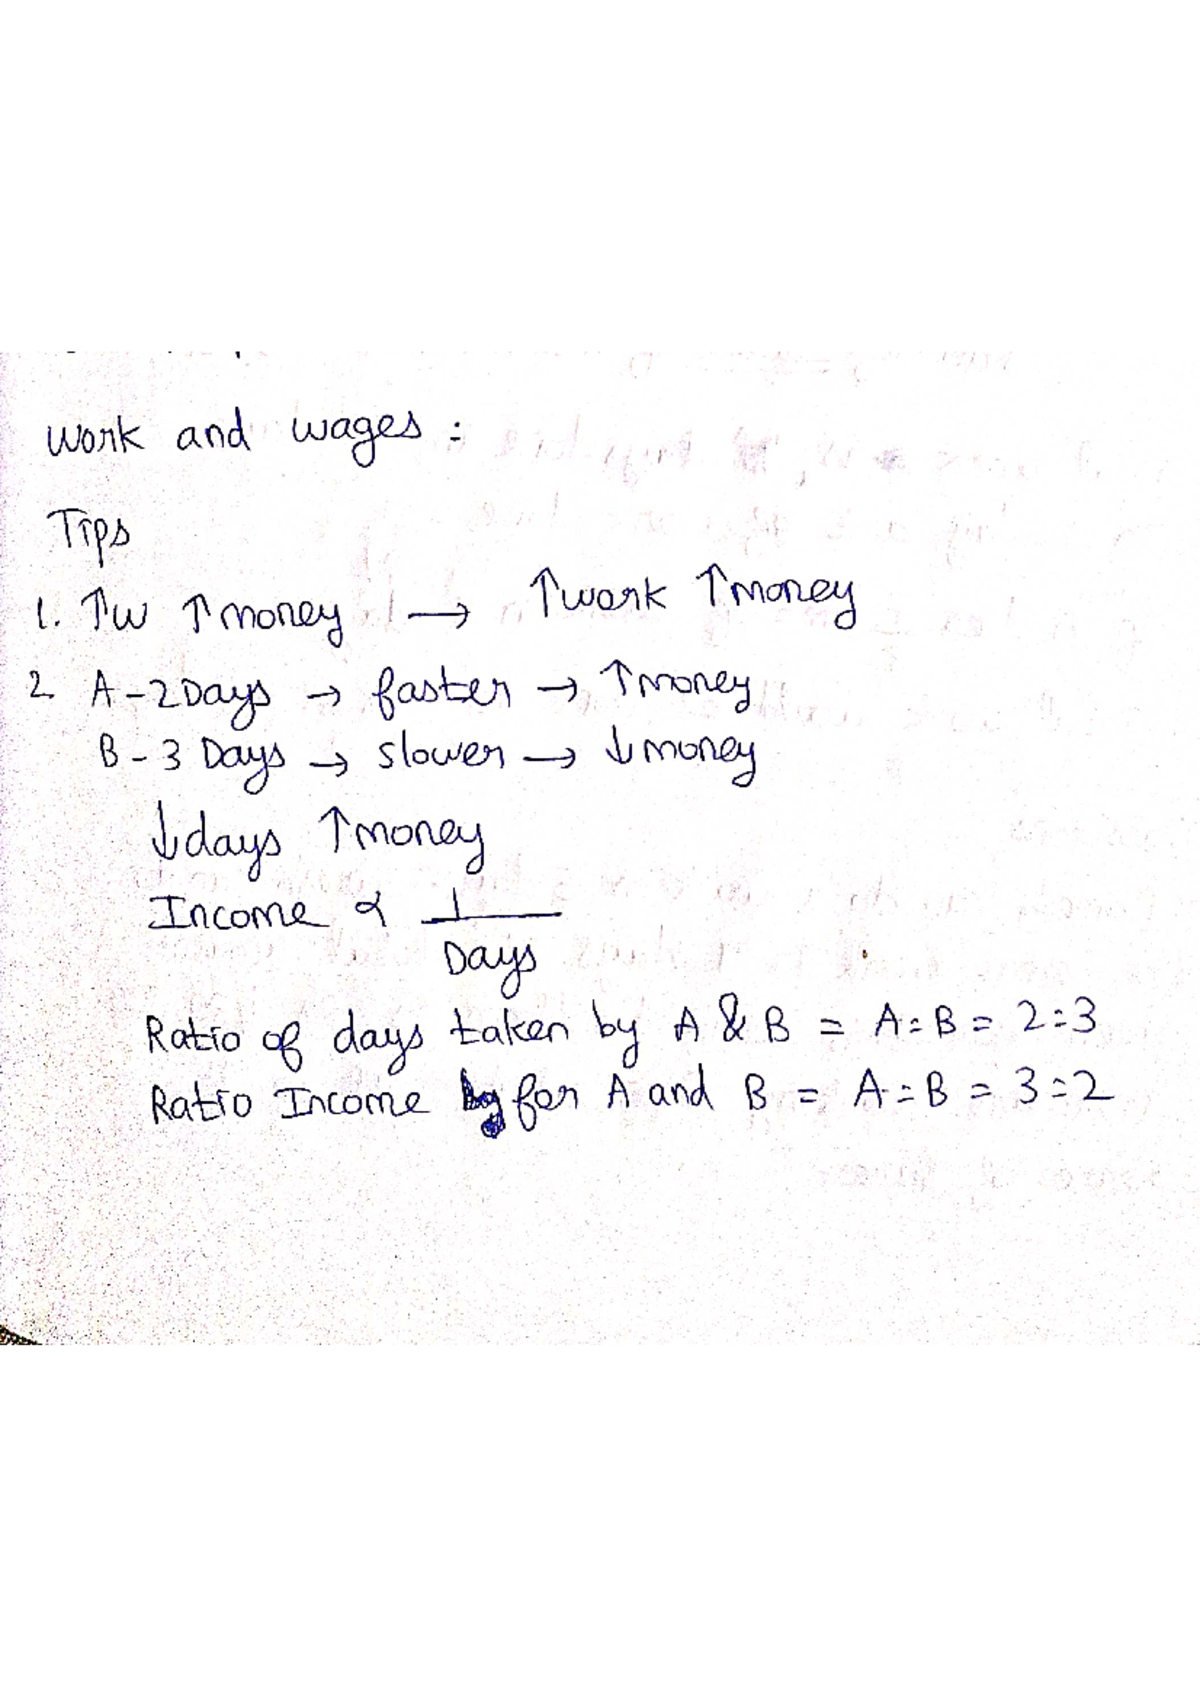 Work and wages :
Tips
1. ↑W ↑money → ↑work ↑money
2 A - 2 Days → faster → ↑money
B - 3 Days → slower → ↓money
↓days ↑money
Income ∝ 1
Days
Ratio of days taken by A & B = A:B = 2:3
Ratio Income for A and B = A:B = 3:2